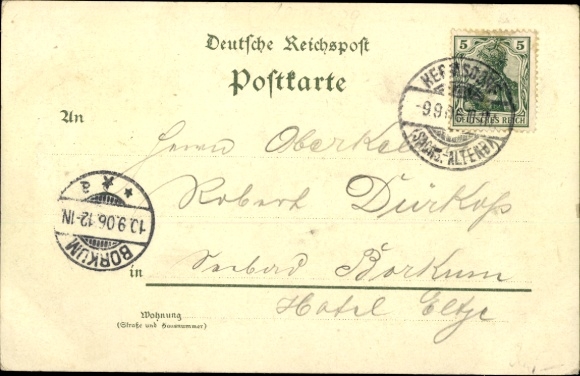 Deutsche Reichspost
Postkarte
5 5
DEUTSCHES REICH
SACHS.-ALTENB.
An
Herrn
Robert Dürkop
in Seebad Borkum
Hotel Eltje
10.9.06.12-1N
BORKUM
a
Wohnung
(Straße und Hausnummer)